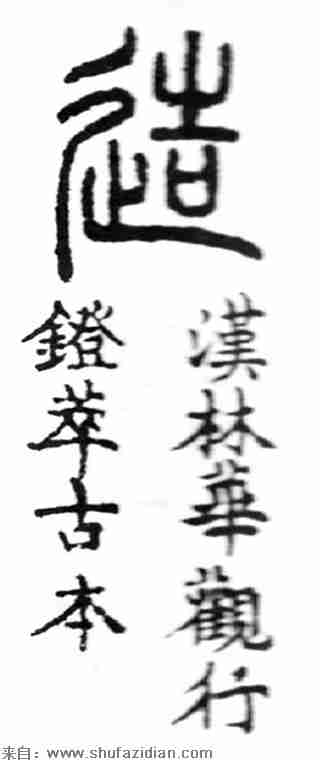 造
漢林華觀行
鐙萃古本
来自：www.shufazidian.com